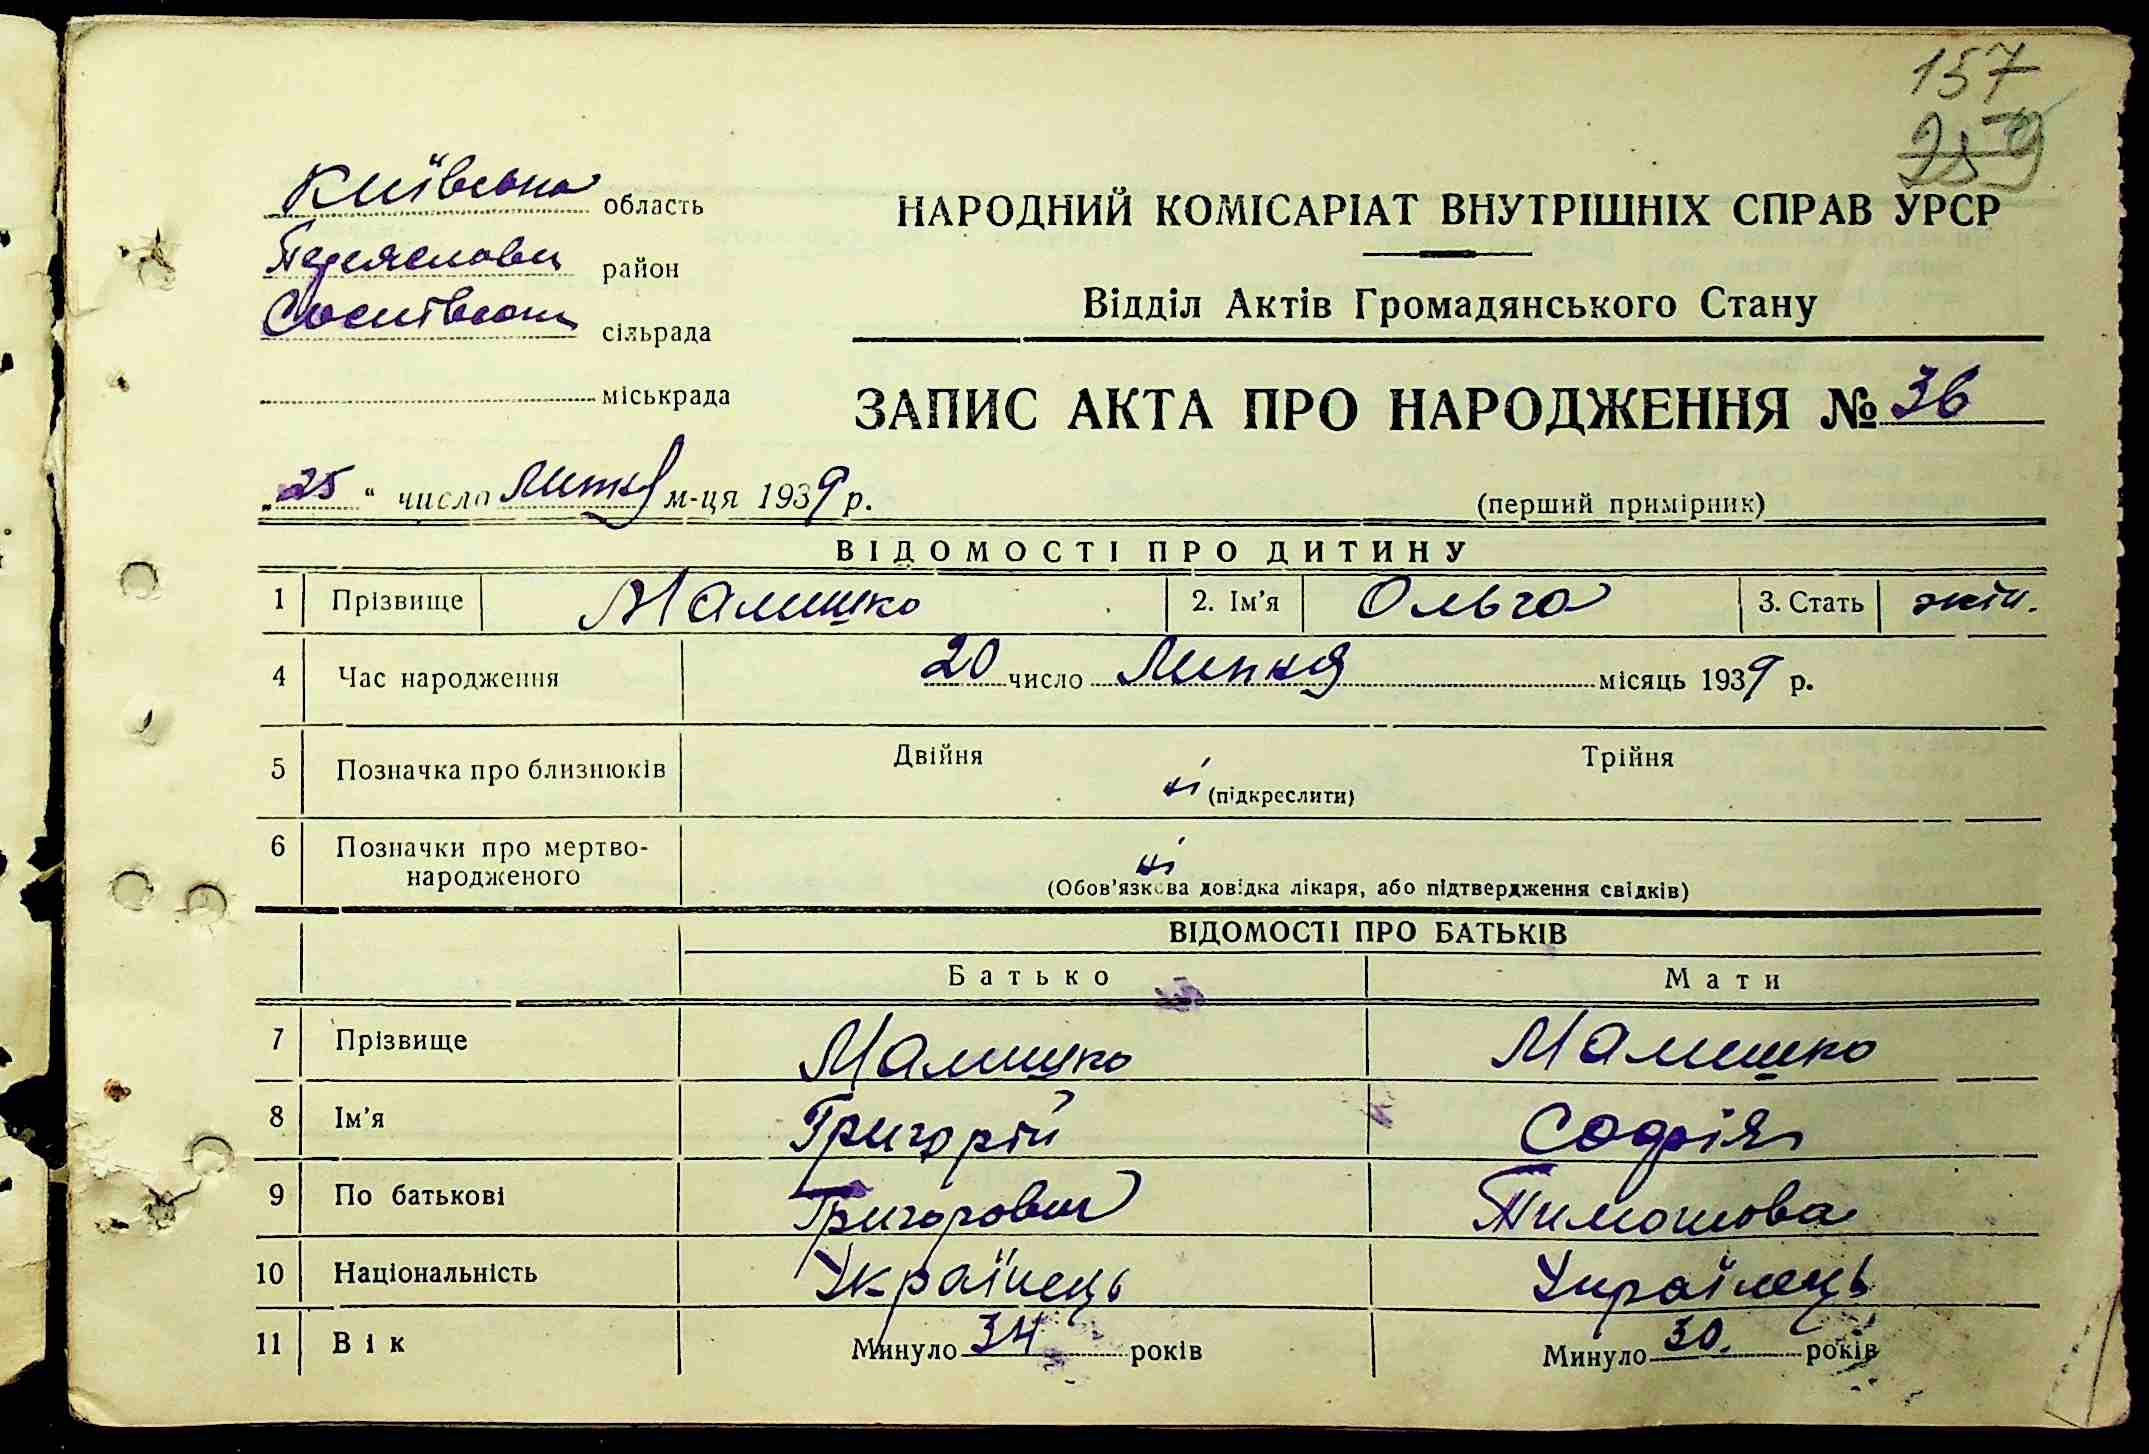 157
259
Київська область
Переяславськ район
Сосні́вська сільрада
міськрада
НАРОДНИЙ КОМІСАРІАТ ВНУТРІШНІХ СПРАВ УРСР
Відділ Актів Громадянського Стану
ЗАПИС АКТА ПРО НАРОДЖЕННЯ № 36
„25“ число Липня м-ця 1939 р.
(перший примірник)
ВІДОМОСТІ ПРО ДИТИНУ
1 Прізвище Малишко 2. Ім'я Ольга 3. Стать жін.
4 Час народження 20 число Липня місяць 1939 р.
5 Позначка про близнюків Двійня ні (підкреслити) Трійня
6 Позначки про мертво-
народженого ні
(Обов'язкова довідка лікаря, або підтвердження свідків)
ВІДОМОСТІ ПРО БАТЬКІВ
Батько Мати
7 Прізвище Малишко Малишко
8 Ім'я Григорій Софія
9 По батькові Григорович Тимошова
10 Національність Українець Українець
11 Вік Минуло 34 років Минуло 30. років